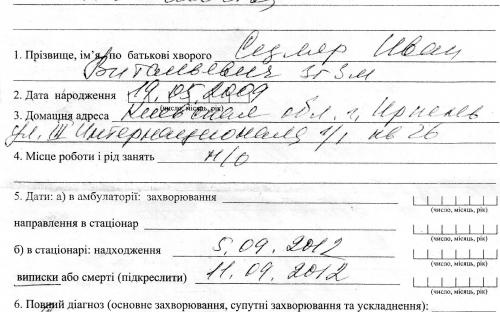 1. Прізвище, ім'я, по батькові хворого Седляр Иван
Витальевич 3г3м
2. Дата народження 19.05.2009
(число, місяць, рік)
3. Домашня адреса Киевская обл. г. Ирпень
ул. III Интернационала 1/1 кв 26
4. Місце роботи і рід занять н/о
5. Дати: а) в амбулаторії: захворювання
(число, місяць, рік)
направлення в стаціонар
(число, місяць, рік)
б) в стаціонарі: надходження 5.09.2012
(число, місяць, рік)
виписки або смерті (підкреслити) 11.09.2012
(число, місяць, рік)
6. Повний діагноз (основне захворювання, супутні захворювання та ускладнення):